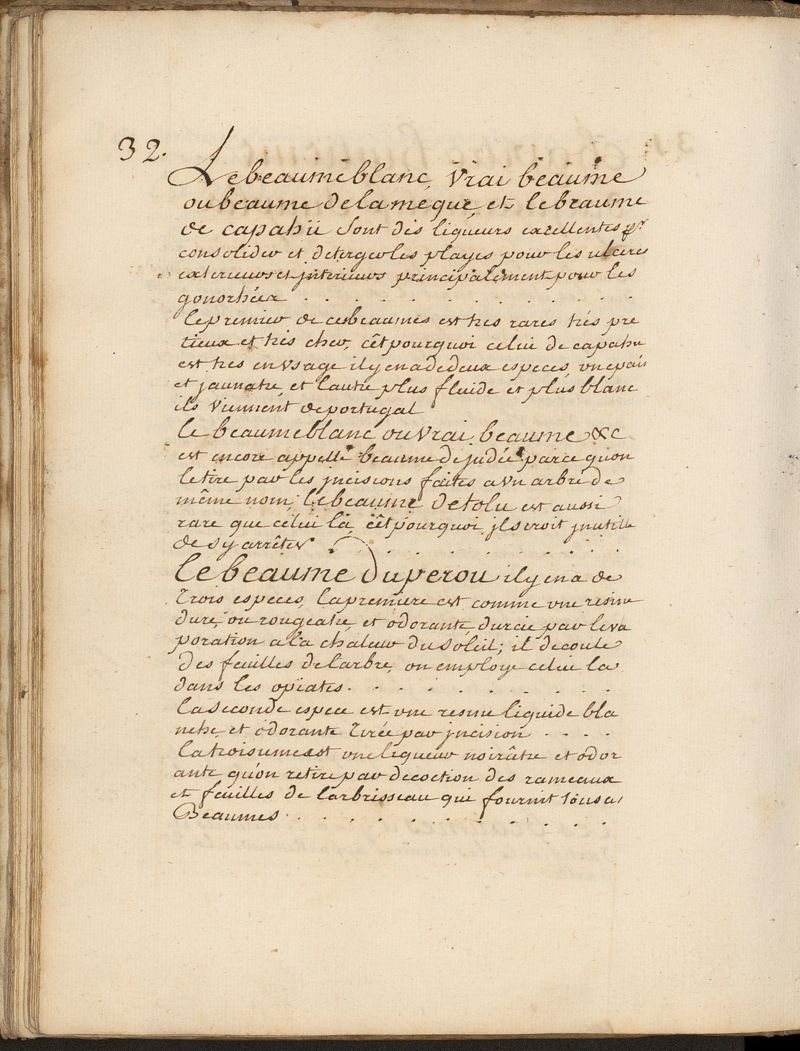 32.
Le beaume blanc, vrai beaume
ou beaume de la meque, et le beaume
de capahü sont dés liqueurs excellentes pr
consolider et deterger les playes pour les ulceres
exterieurs et jnterieurs principalement pour les
gonorhéex . . . . . . . . . .
le premier de ces beaumes est tres rares trés pre
tieux et trés cher, cêt pourquoi celui de capahu
est tres en vsage il y en a de deux especes, vn epais
et jaunatre, et l'autre plus fluide et plus blanc
ils viennent de portugal
le beaume blanc ou vrai beaume &c
est encore appellé beaume de judée parce qu'on
le tire par les jncisions faites a vn arbre de
même nom, le beaume de tolu est aussi
rare que celui la, cêt pourquoi jl seroit jnutille
de s'y arrêter . . . . . . . .
Le beaume du perou il y en a de
trois especes, la premiere est comme vne resine
dure, ou rougeatre, et odorante durcie par leva
poration a la chaleur du soleil; il decoule
des feuilles de larbre, on employe celui la
dans les opiates. . . . . . . .
la seconde espece est vne resine liquide bla
nche, et odorante tirée par jncision . . . .
la troisieme est vne liqueur noirâtre et odor
ante qu'on retire par decoction des rameaux
et feuilles de larbrisseau qui fournit tous ces
Beaumes . . . . . . . . .